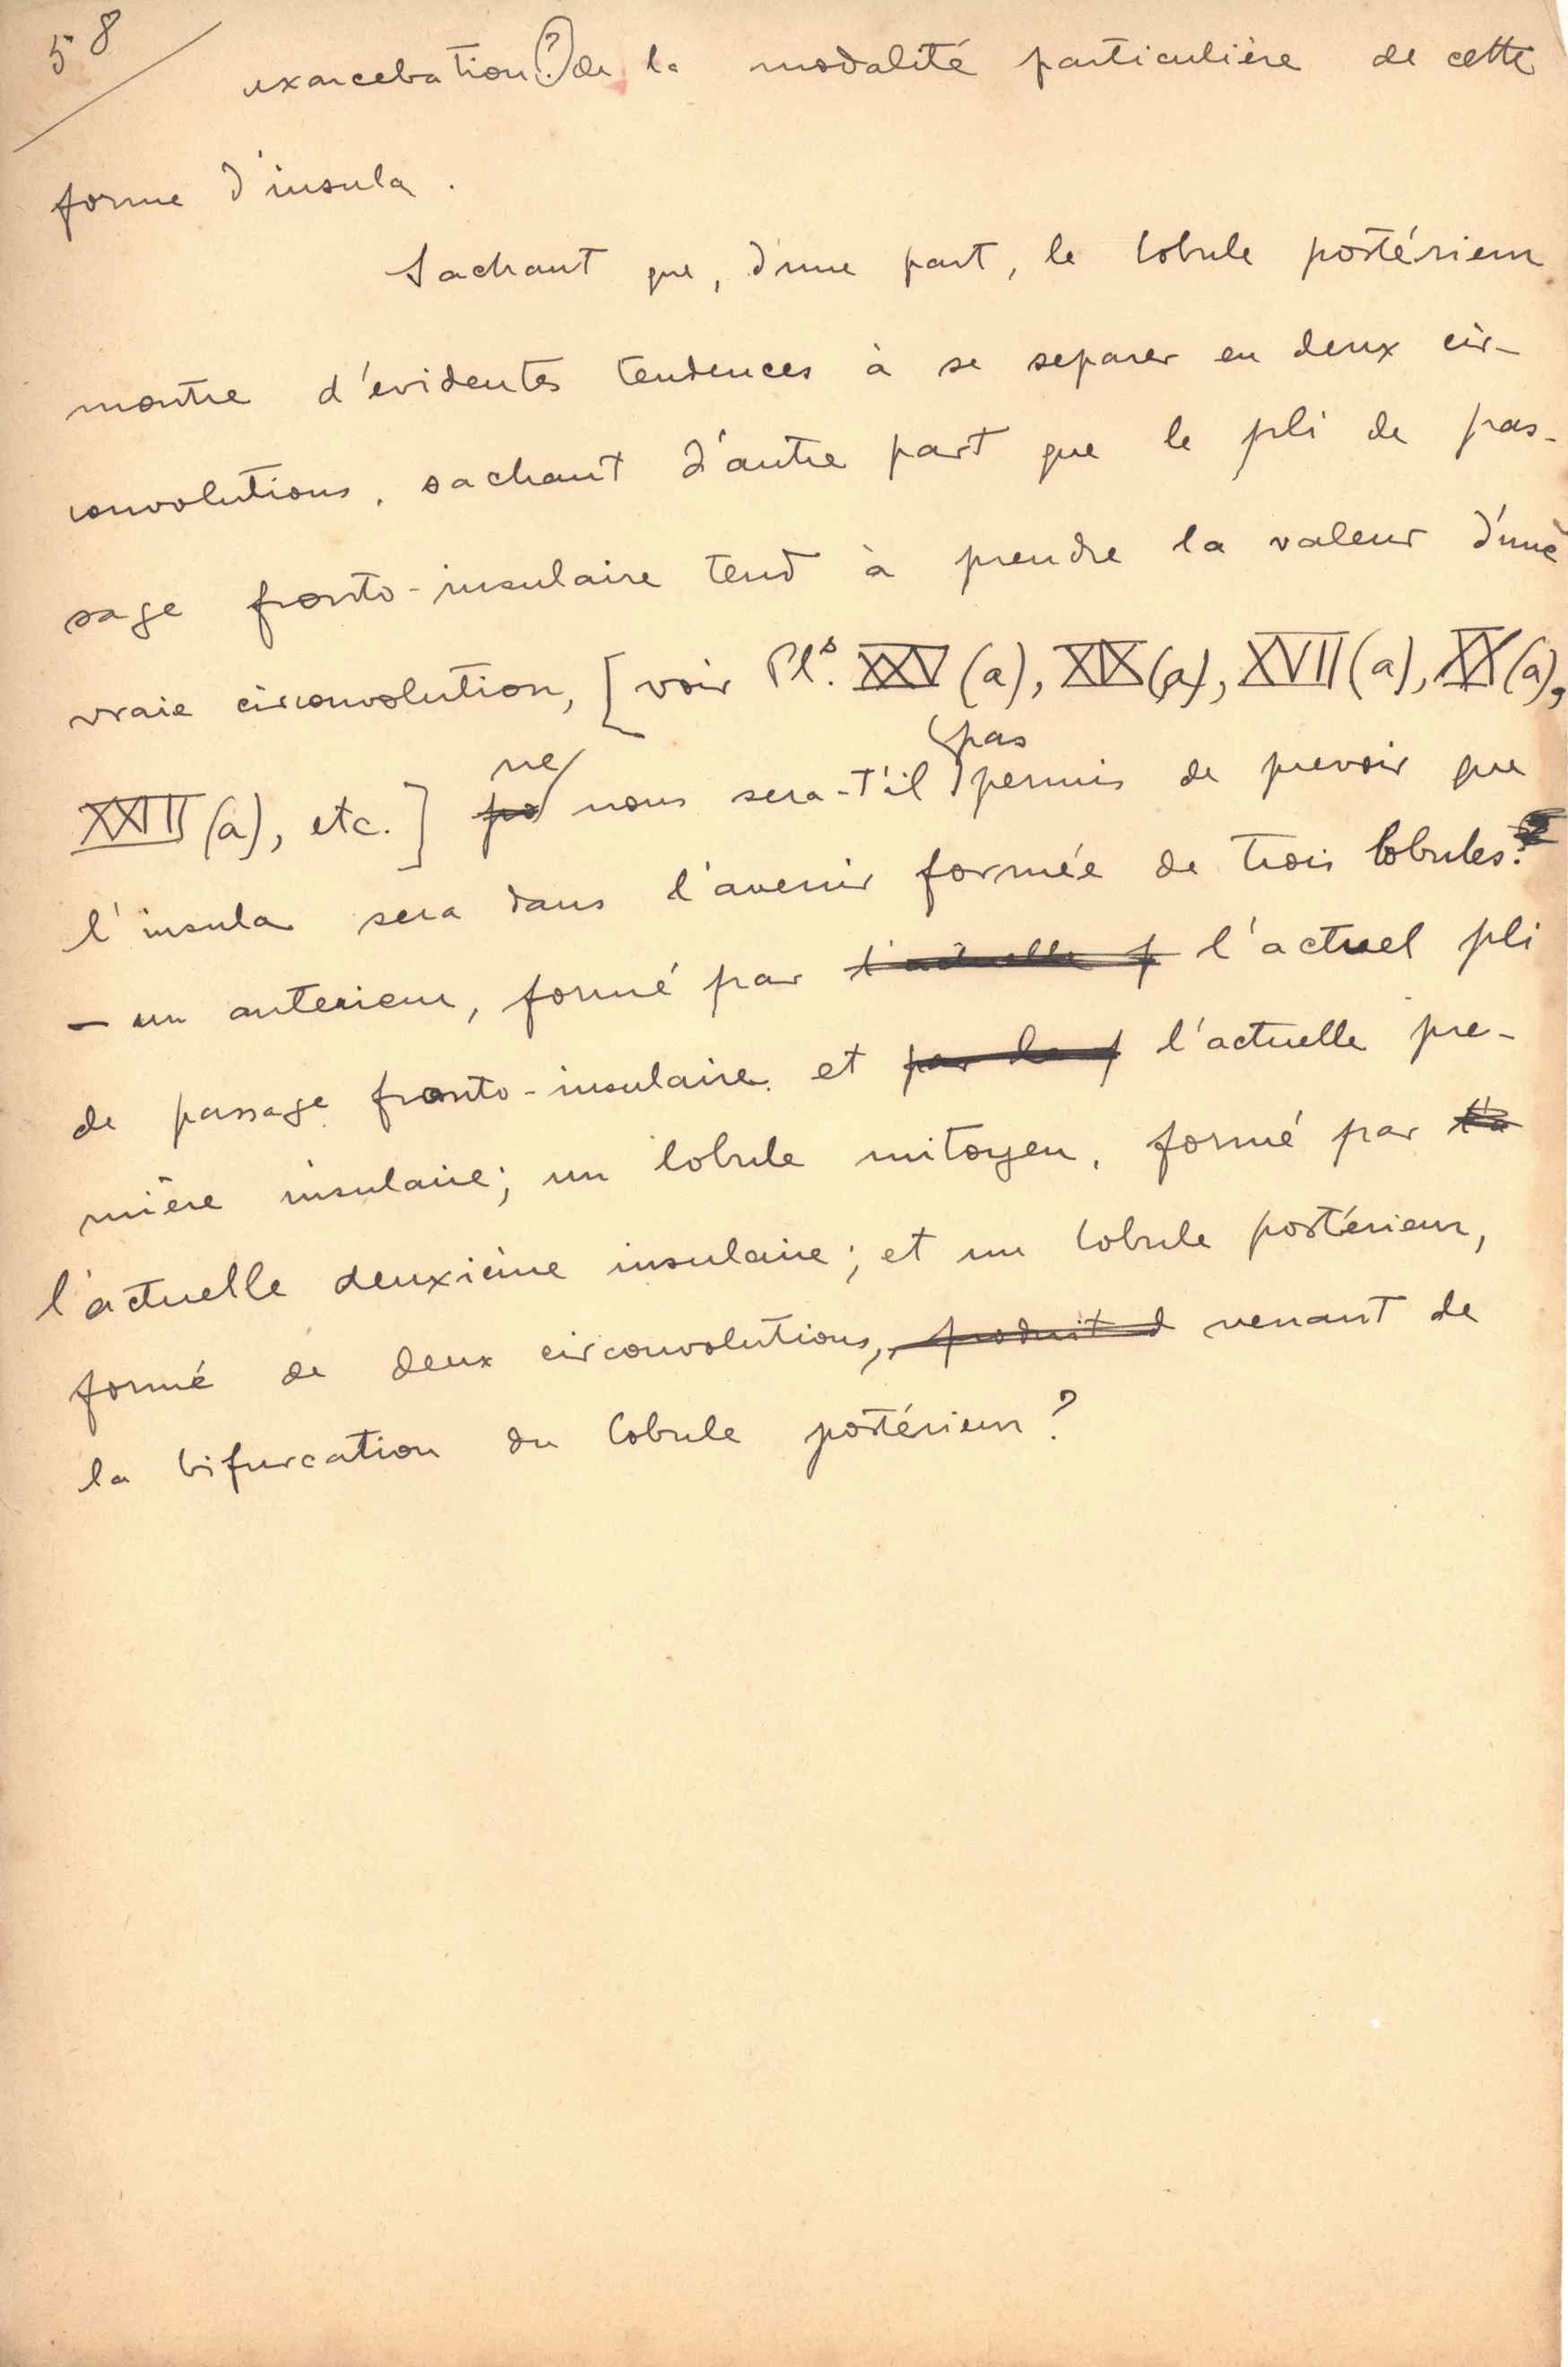 58
exarcebation (?) de la modalité particulière de cette
forme d'insula.
Sachant que, d'une part, le lobule postérieur
montre d'évidentes tendences à se separer en deux cir-
convolutions, sachant d'autre part que le pli de pas-
sage fronto-insulaire tend à prendre la valeur d'une
vraie circonvolution, [voir Pls. XXV (a), XIX (a), XVII (a), XX (a),
ne pas
XXIII (a), etc.] nous sera-t'il permis de prevoir que
l'insula sera dans l'avenir formée de trois lobules:
— un anterieur, formé par l'actuel pli
de passage fronto-insulaire et l'actuelle pre-
mière insulaire; un lobule mitoyen, formé par
l'actuelle deuxième insulaire; et un lobule postérieur,
formé de deux circonvolutions, produit d venant de
la bifurcation du lobule postérieur?